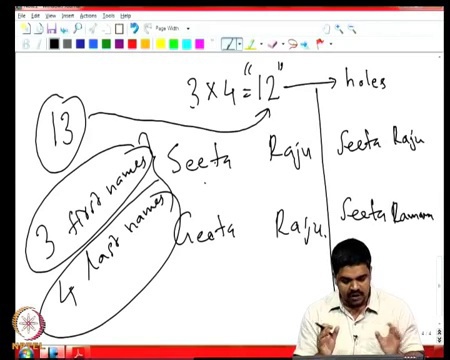 File Edit View Insert Actions Tools Help
Page Width
3 × 4 = "12" → holes
13
3 first names
4 last names
Seeta Raju
Seeta Raju
Geeta Raju.
Seeta Ramana
NPTEL